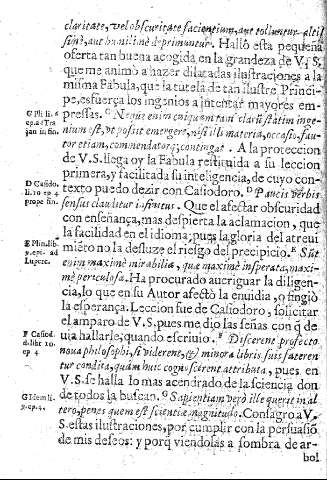 claritate, vel obscuritate facientium, aut tolluntur altis
simè, aut humilimè deprimuntur. Halló esta pequeña
oferta tan buena acogida en la grandeza de V.S.
que me animó a hazer dilatadas ilustraciones a la
misma Fabula, que la tutela de tan ilustre Princi-
pe, esfuerça los ingenios a intentar mayores em-
pressas. G Neque enim cuiquam tam clarū statim inge-
nium est, vt possit emergere, nisi illi materia, occasio, fau
tor etiam, commendatorq; contingat. A la proteccion
de V.S. llega oy la Fabula restituida a su leccion
primera, y facilitada su inteligencia, de cuyo con-
texto puedo dezir con Casiodoro. D Paucis verbis
sensus clauditur infinitus. Que el afectar obscuridad
con enseñança, mas despierta la aclamacion, que
la facilidad en el idioma; pues la gloria del atreui
miēto no la desluze el riesgo del precipicio. E Sūt
enim maximè mirabilia, quæ maximè insperata, maxi-
mè periculosa. Ha procurado aueriguar la diligen-
cia, lo que en su Autor afectò la enuidia, o fingiò
la esperança. Leccion fue de Casiodoro, solicitar
el amparo de V.S. pues me dio las señas con q̃ de
uia hallarle; quando escriuio. F Discerent profecto
noua philosophi, si viderent, & minora libris suis fateren
tur condita, quàm huic cognoscerent attributa, pues en
V.S. se halla lo mas acendrado de la sciencia don
de todos la buscan. G Sapientiam verò ille quærit in al
tero, penes quem est scientiæ magnitudo. Consagro a V.
S. estas ilustraciones, por cumplir con la persuasiō
de mis deseos: y porq̃ viendolas a sombra de ar-
bol
G Pli. li. 6
ep. ad Tra
jan. in fin.
D Casido.
li. 10 ep. 4
prope fin.
E Plin. lib
9. epi. ad
Luperc.
F Casiod.
d. libr. 10.
ep. 4
G Idem li.
9. ep. 4.